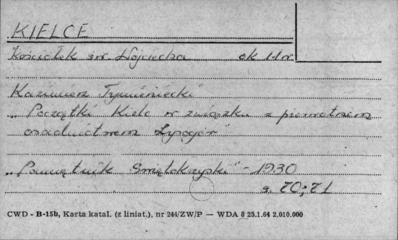 KIELCE
Kościółek św. Wojciecha ok 11 w.
Kazimierz Tymieniecki
„Początki Kielc w związku z pierwotnem
osadnictwem Łysogór"
„Pamiętnik Świętokrzyski" - 1930
s. 70; 71
CWD - B-15b, Karta katal. (z liniat.), nr 244/ZW/P — WDA 8 23.1.64 2.010.000